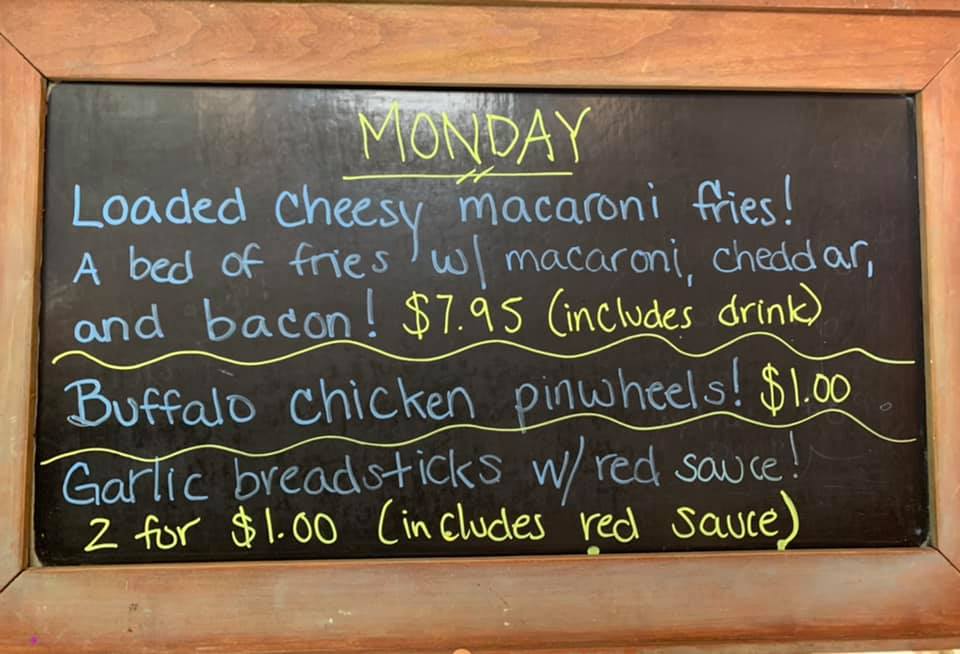 MONDAY
Loaded cheesy macaroni fries!
A bed of fries w/ macaroni, cheddar,
and bacon! $7.95 (includes drink)
Buffalo chicken pinwheels! $1.00
Garlic breadsticks w/ red sauce!
2 for $1.00 (includes red sauce)